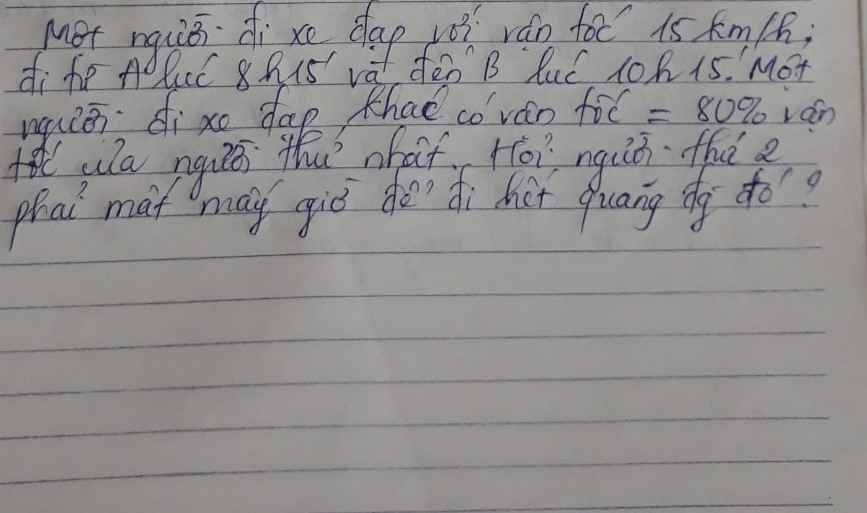 Một người đi xe đạp với vận tốc 15 km/h;
đi từ A lúc 8h15' và đến B lúc 10h15'. Một
người đi xe đạp khác có vận tốc = 80% vận
tốc của người thứ nhất. Hỏi người thứ 2
phải mất mấy giờ để đi hết quãng đg đó?